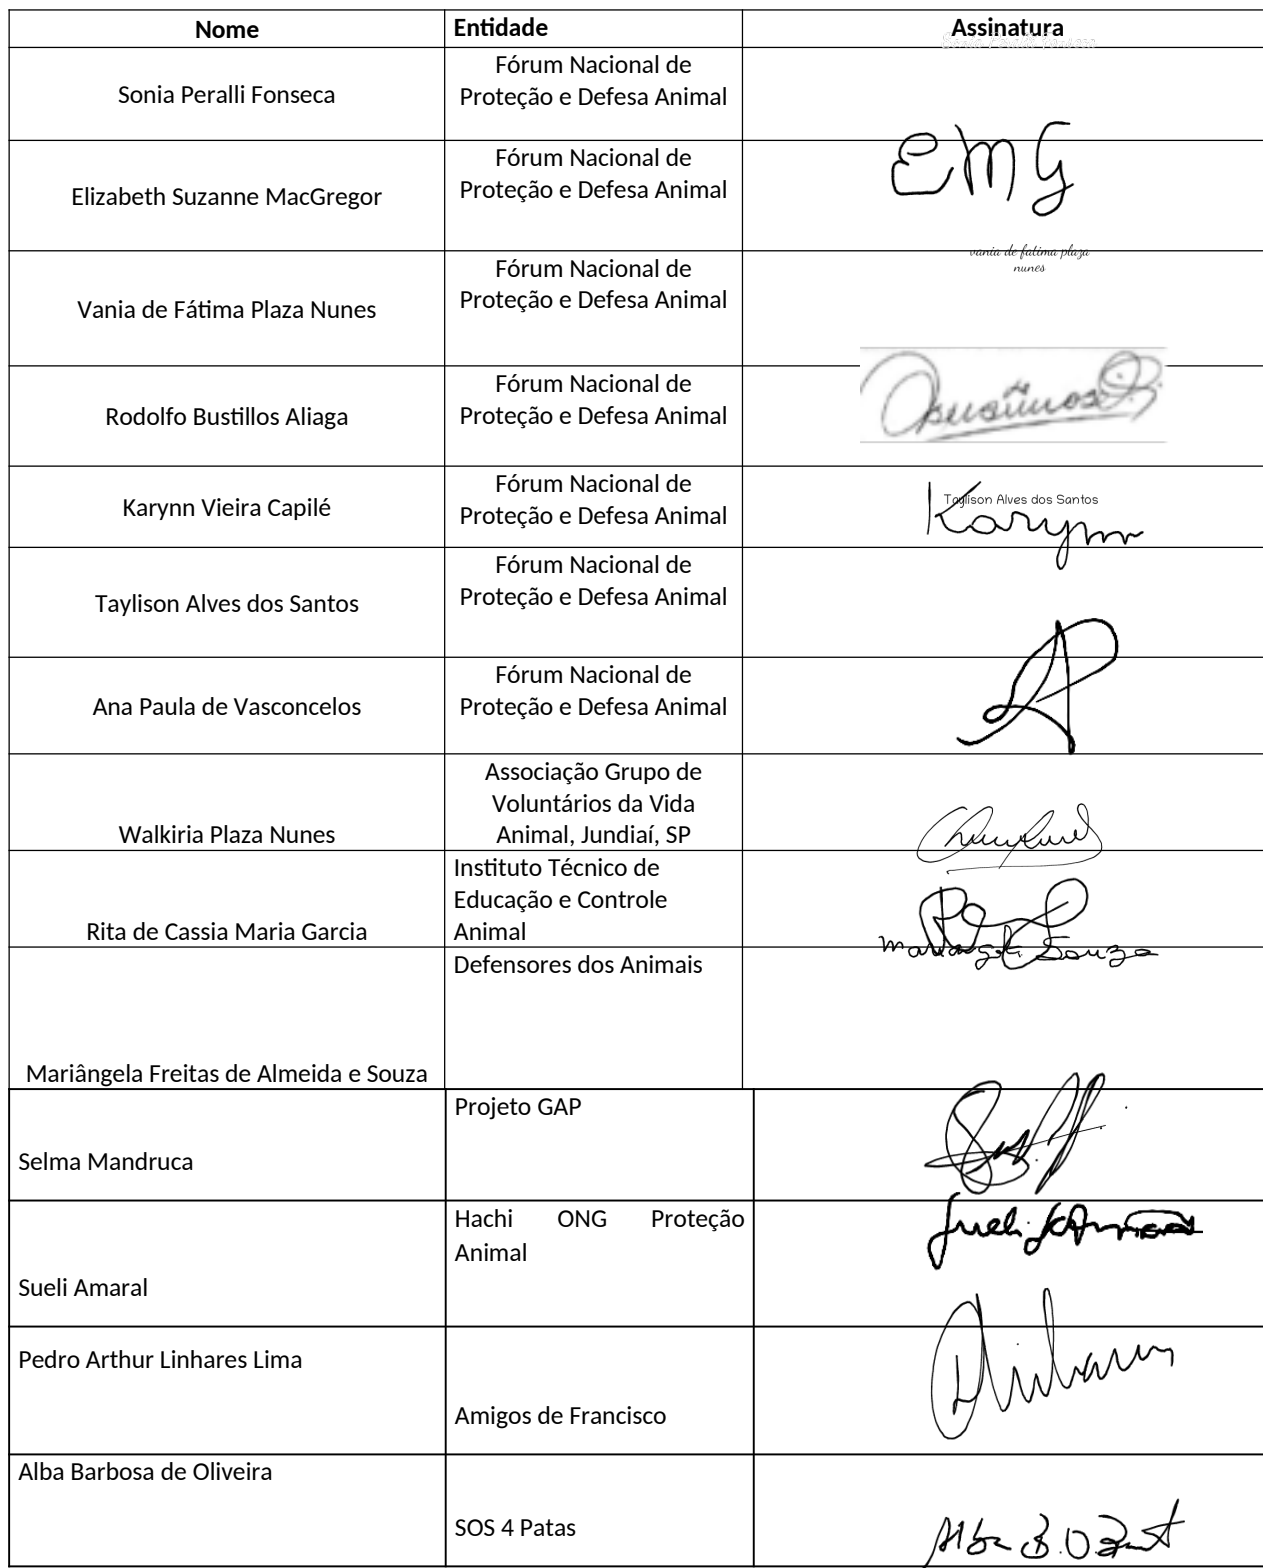 Nome Entidade Assinatura
Sonia Peralli Fonseca
Fórum Nacional de
Proteção e Defesa Animal
Elizabeth Suzanne MacGregor
Fórum Nacional de
Proteção e Defesa Animal
EMG
Vania de Fátima Plaza Nunes
Fórum Nacional de
Proteção e Defesa Animal
vania de fatima plaza
nunes
Rodolfo Bustillos Aliaga
Fórum Nacional de
Proteção e Defesa Animal
Karynn Vieira Capilé
Fórum Nacional de
Proteção e Defesa Animal
Taylison Alves dos Santos
Karynn
Taylison Alves dos Santos
Fórum Nacional de
Proteção e Defesa Animal
Ana Paula de Vasconcelos
Fórum Nacional de
Proteção e Defesa Animal
Walkiria Plaza Nunes
Associação Grupo de
Voluntários da Vida
Animal, Jundiaí, SP
Rita de Cassia Maria Garcia
Instituto Técnico de
Educação e Controle
Animal
Mariângela Freitas de Almeida e Souza
Defensores dos Animais
Souza
Selma Mandruca
Projeto GAP
Sueli Amaral
Hachi ONG Proteção
Animal
Sueli
Pedro Arthur Linhares Lima
Amigos de Francisco
Alba Barbosa de Oliveira
SOS 4 Patas
Alba B. O.